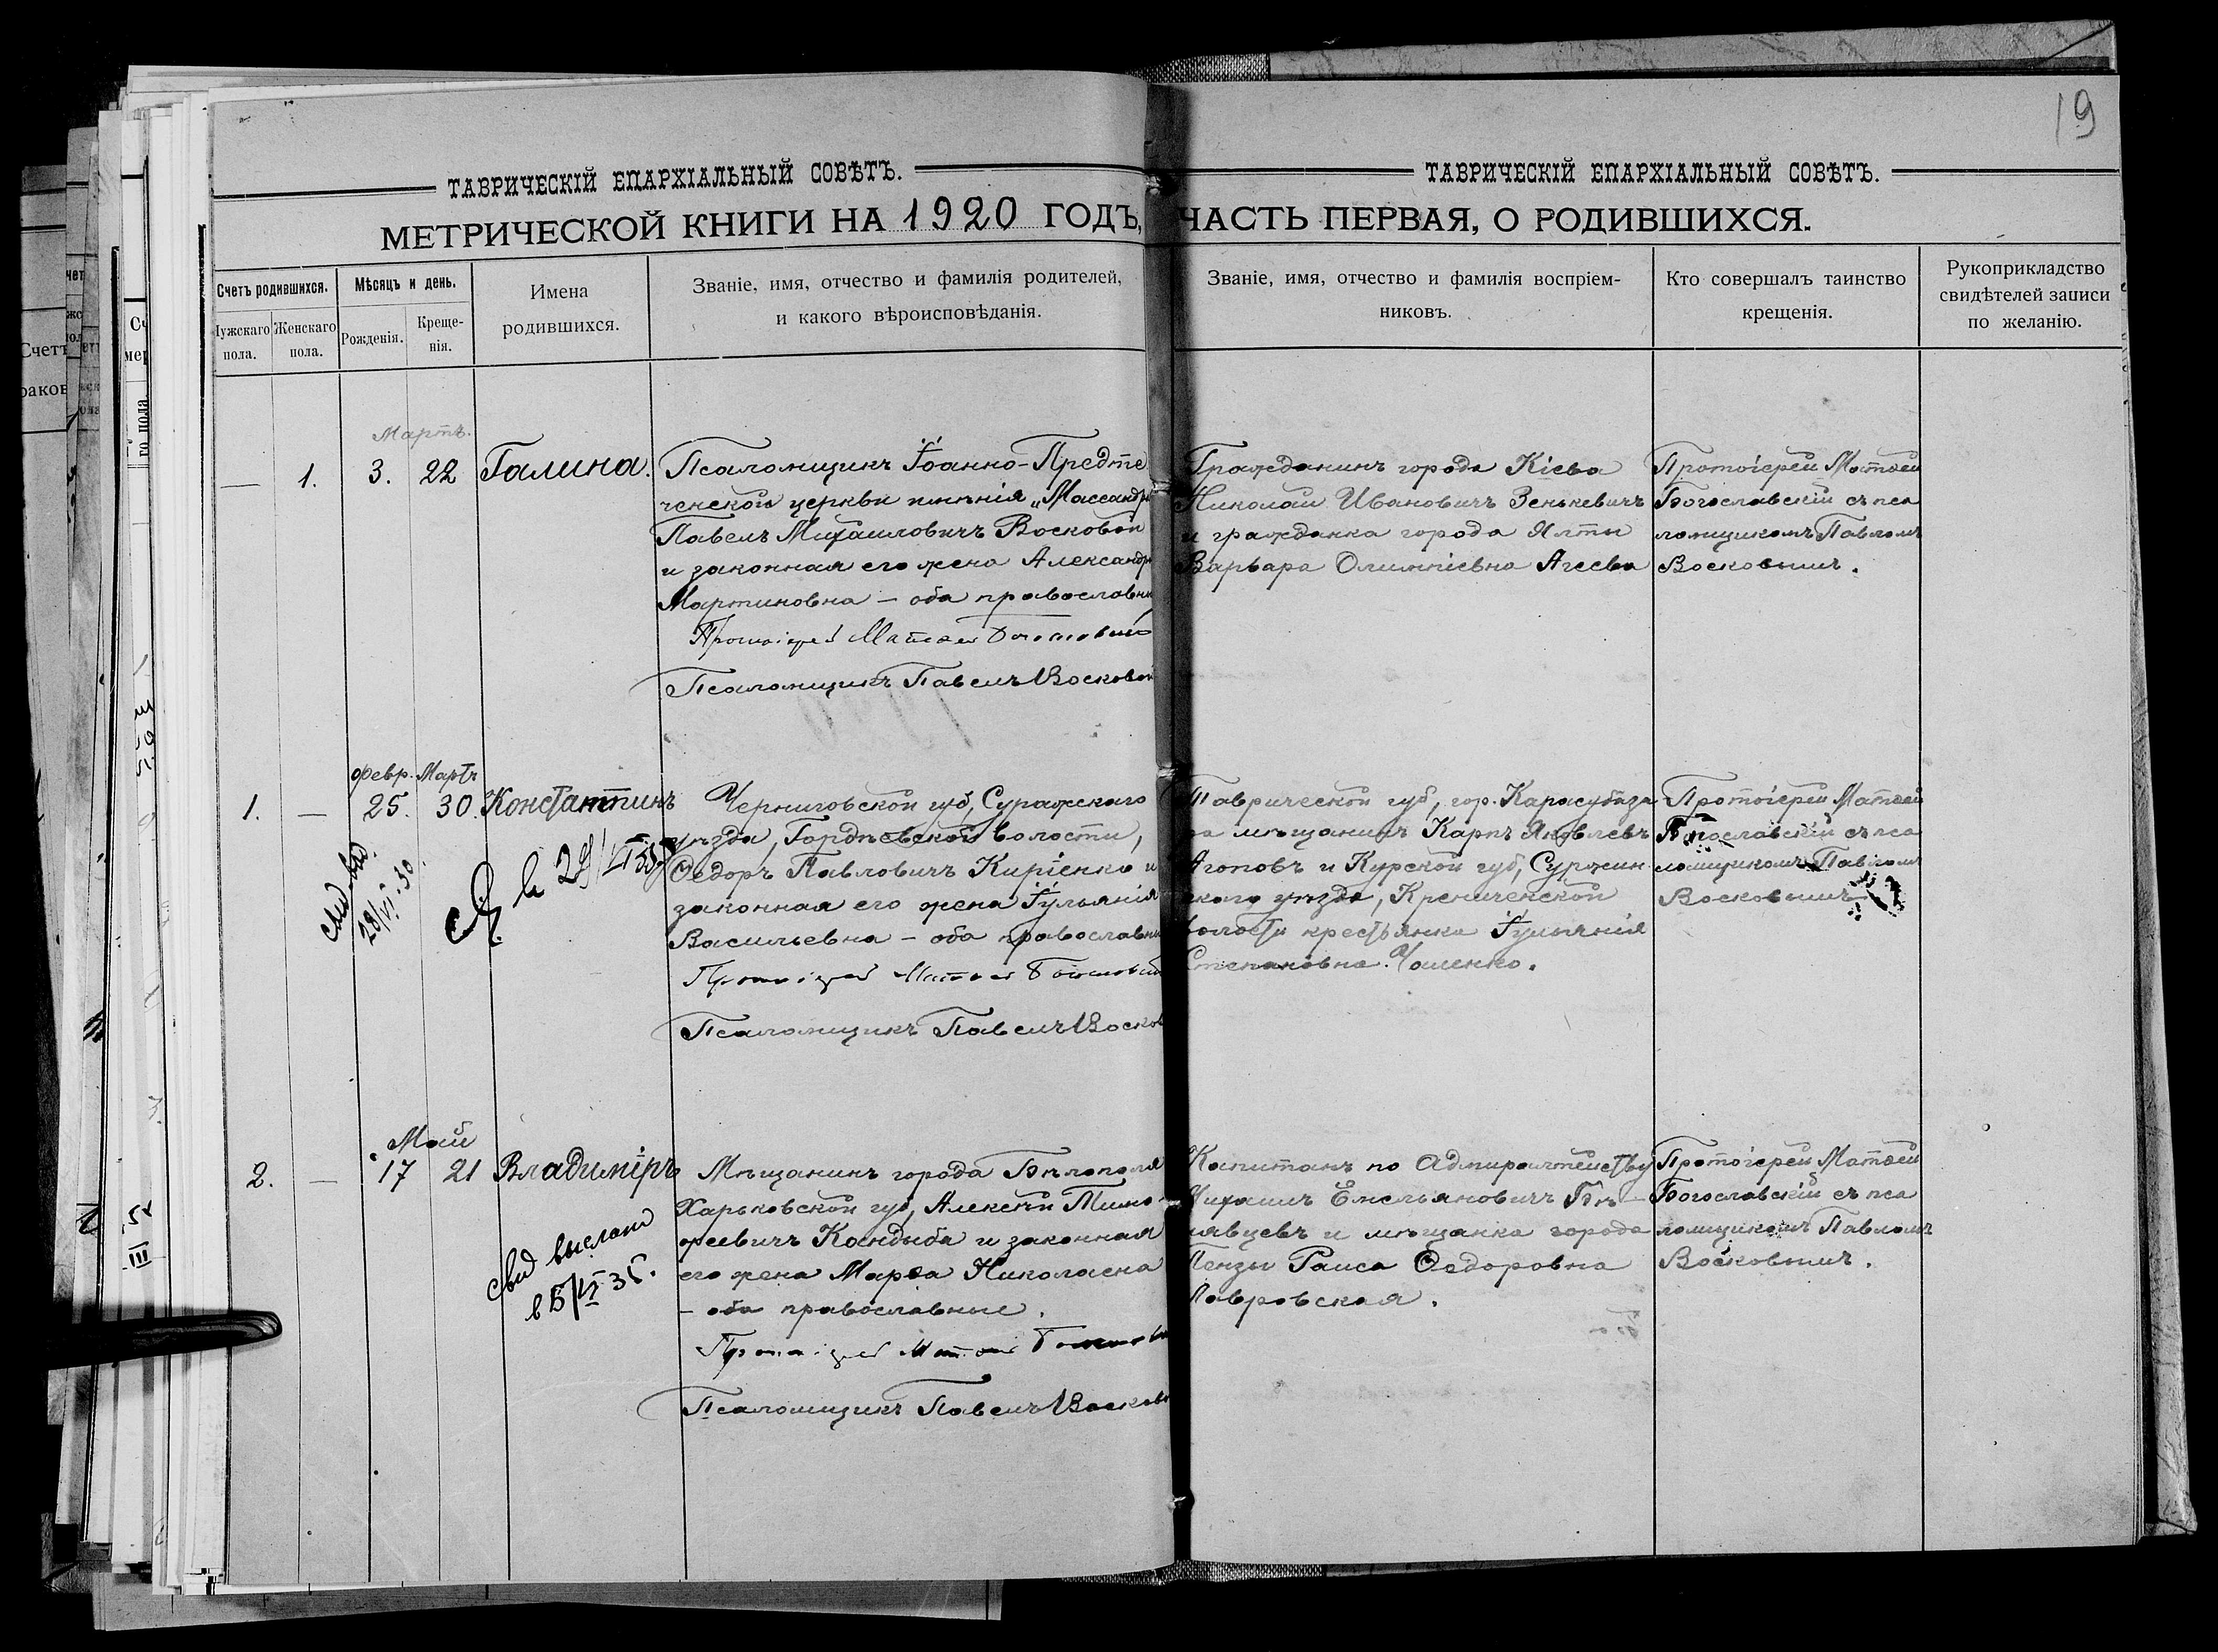 19
ТАВРИЧЕСКІЙ ЕПАРХІАЛЬНЫЙ СОВѢТЪ.
МЕТРИЧЕСКОЙ КНИГИ НА 1920 ГОДЪ,
Счетъ родившихся.
Мужскаго пола.
Женскаго пола.
Мѣсяцъ и день.
Рожденія.
Креще-
нія.
Имена
родившихся.
Званіе, имя, отчество и фамилія родителей,
и какого вѣроисповѣданія.
ТАВРИЧЕСКІЙ ЕПАРХІАЛЬНЫЙ СОВѢТЪ.
ЧАСТЬ ПЕРВАЯ, О РОДИВШИХСЯ.
Званіе, имя, отчество и фамилія воспріем-
никовъ.
Кто совершалъ таинство
крещенія.
Рукоприкладство
свидѣтелей записи
по желанію.
Мартъ.
— 1. 3. 22 Галина.
Псаломщикъ Іоанно-Предте
ченской церкви имѣнія „Массандр
Павелъ Михаиловичъ Восковой
и законная его жена Александр
Мартиновна — оба православн
Протоіерей Матѳей Богословскій
Псаломщикъ Павелъ Восковой
Гражданинъ города Кіева
Николай Ивановичъ Зенькевичъ
и гражданка города Ялты
Варвара Олимпіевна Агеева
Протоіерей Матѳей
Богославскій съ пса
ломщикомъ Павломъ
Восковымъ.
Февр. Мартъ
1. — 25. 30. Константинъ
свид выд
28/VI 30.
в 29/VI
Черниговской губ, Суражскаго
уѣзда, Гордѣевской волости,
Ѳедоръ Павловичъ Киріенко и
законная его жена Іульянія
Васильевна — оба православн
Протоіерей Матѳей Богословскій
Псаломщикъ Павелъ Восков
Таврической губ, гор. Карасубаза
ра мѣщанинъ Карпъ Яковлевъ
Агоповъ и Курской губ, Суржин-
скаго уѣзда, Крениченской
волости крестьянка Іульянія
Степановна Чаленко.
Протоіерей Матѳей
Богославскій съ пса
ломщикомъ Павломъ
Восковымъ
Май
2. — 17 21 Владиміръ
свид выслано
в 5/VI 35.
Мѣщанинъ города Бѣлополя
Харьковской губ, Алексѣй Тимо-
феевичъ Кандыба и законная
его жена Марѳа Николаена
— оба православные.
Протоіерей Матѳей Богослов
Псаломщикъ Павелъ Восков
Капитанъ по Адмиралтейству
Михаилъ Емельяновичъ Бѣ-
лявцевъ и мѣщанка города
Пензы Раиса Ѳедоровна
Лавровская.
Протоіерей Матѳей
Богославскій съ пса
ломщикомъ Павломъ
Восковымъ.